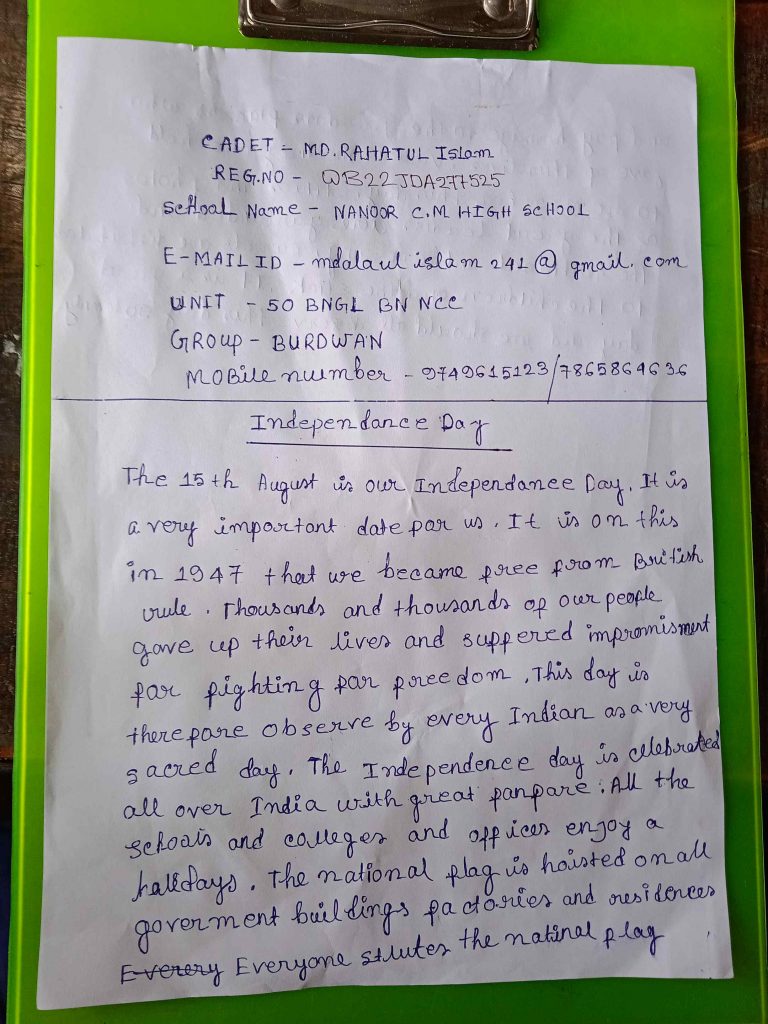 CADET - MD. RAHATUL Islam
REG.NO - WB22JDA277525
School Name - NANOOR C.M HIGH SCHOOL
E-MAIL ID - mdalaulislam241@gmail.com
UNIT - 50 BNGL BN NCC
GROUP - BURDWAN
MOBile number - 9749615123/7865864636
Independance Day
The 15th August is our Independance Day. It is
a very important date par us. It is on this
in 1947 that we became pree prom British
rule. Thousands and thousands op our people
gave up their lives and suppered impromisment
par pighting par preedom. This day is
therepare observe by every Indian as a very
sacred day. The Independence day is celebrated
all over India with great panpare. All the
schools and colleges and oppices enjoy a
halidays. The national plag is hoisted on all
goverment buildings pactories and residences
Everery Everyone salutes the natinal plag